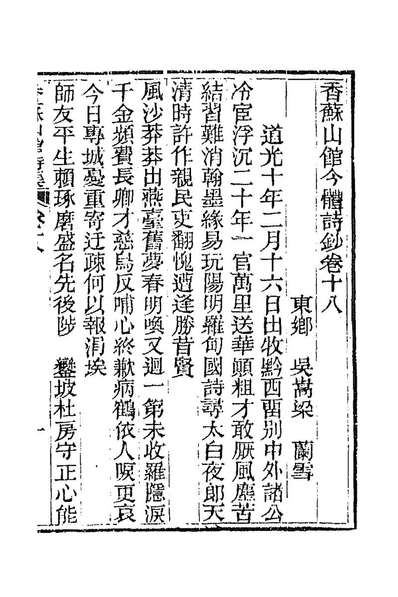 香蘇山館今體詩鈔卷十八
東鄉　吳嵩梁　蘭雪
道光十年二月十六日出牧黔西畱別中外諸公
冷宦浮沉二十年一官萬里送華顛粗才敢厭風塵苦
結習難消翰墨緣易玩陽明羅甸國詩尋太白夜郎天
清時許作親民吏翻愧遭逢勝昔賢
風沙莽莽出燕臺舊夢春明喚又迴一第未收羅隱淚
千金頻費長卿才慈烏反哺心終歉病鶴依人唳更哀
今日專城憂重寄迂疎何以報涓埃
師友平生賴琢磨盛名先後陟　鑾坡杜房守正心能
一